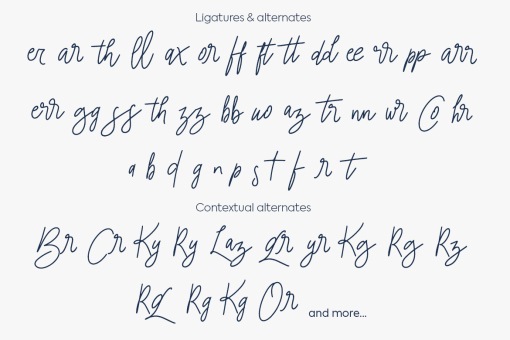 Ligatures & alternates
er ar th ll ax or ff ft tt dd ee rr pp arr
err gg ss th zz bb wo az tr nn wr Co hr
a b d g n p s t f r t
Contextual alternates
Br Cr Ky Ry Laz gr yr Kg Rg Rz
Rg Kg Or and more...